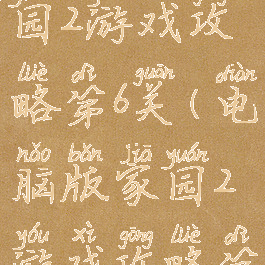 园2游戏攻
lüè dì guān diàn
略第6关(电
nǎo bǎn jiā yuán
脑版家园2
yóu xì gōng lüè dì
游戏攻略第